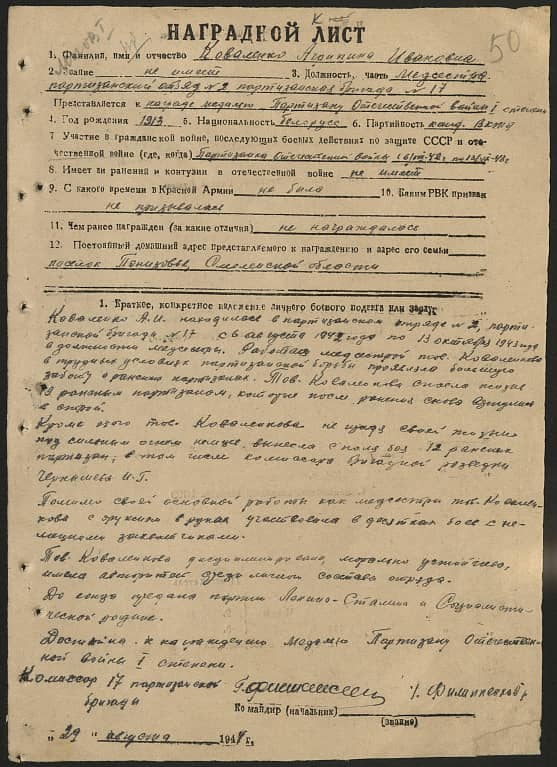 50
НАГРАДНОЙ ЛИСТ
1. Фамилия, имя и отчество Коваленко Агрипина Ивановна
2. Звание не имеет 3. Должность, часть Медсестра
партизанский отряд № 2 партизанская бригада № 17
Представляется к награде медалью Партизану Отечественной войны I степени
4. Год рождения 1913 5. Национальность белорусс 6. Партийность канд. ВКП/б
7 Участие в гражданской войне, последующих боевых действиях по защите СССР и оте-
чественной войне (где, когда) Партизанка Отечественной войны с
8. Имеет ли ранения и контузии в отечественной войне не имеет
9. С какого времени в Красной Армии не была 10. Каким РВК призван
не призывалась
11. Чем ранее награжден (за какие отличия) не награждалась
12. Постоянный домашний адрес представляемого к награждению и адрес его семьи
поселок Понизовье, Смоленской области
1. Краткое, конкретное изложение личного боевого подвига или заслуг
Коваленко А.И. находилась в партизанском отряде № 2, парти-
занской бригады № 17 с 6 августа 1942 года по 13 октября 1943 года
в должности медсестры. Работая медсестрой тов. Коваленкова
в трудных условиях партизанской борьбы проявляла большую
заботу о раненых партизанах. Тов. Коваленкова спасла жизнь
раненым партизанам, которые после ранения снова вернулись
в строй.
Кроме этого тов. Коваленкова не щадя своей жизни
под сильным огнем немцев, вынесла с поля боя 12 раненых
партизан, в том числе комиссара бригадной разведки
Чернышева И.Г.
Помимо своей основной работы как медсестры тов. Ковален-
кова с оружием в руках участвовала в десятках боев с не-
мецкими захватчиками.
Тов. Коваленкова дисциплинирована, морально устойчива,
имела авторитет среди личного состава отряда.
До конца предана партии Ленина-Сталина и Социалисти-
ческой родине.
Достойна к награждению медалью Партизану Отечествен-
ной войны I степени.
Комиссар 17 партизанской
бригады /. Филипенков/
Командир (начальник)
(звание)
"29" августа 1944 г.